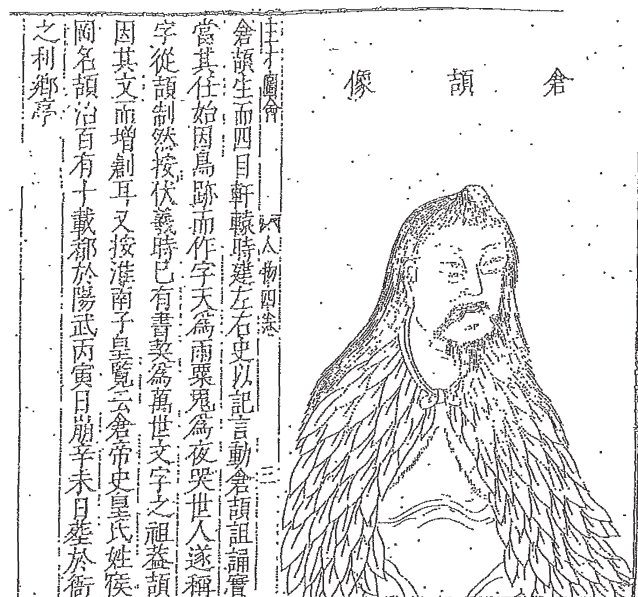 倉頡像
三才圖會 人物四卷 二
倉頡生而四目軒轅時建左右史以記言動倉頡詛誦實
當其任始因鳥跡而作字天爲雨粟鬼爲夜哭世人遂稱
字從頡制然按伏羲時已有書契爲萬世文字之祖葢頡
因其文而增創耳又按淮南子皇覽云倉帝史皇氏姓侯
岡名頡治百有十載都於陽武丙寅日崩辛未日葬於衙
之利鄉亭